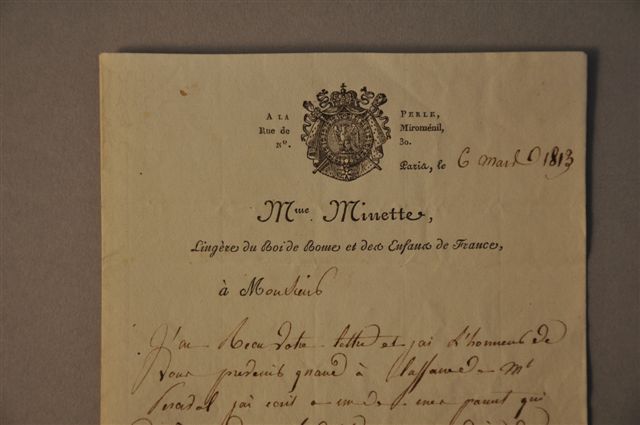 A LA PERLE,
Rue de Miroménil,
N°. 30.
Paris, le 6 mars 1813
Mme. Minette,
Lingère du Roi de Rome et des Enfans de France,
à Monsieur
J'ai Recu votre lettre et jai L'honneur de
vous
jai ecrit a un de mes parent qui